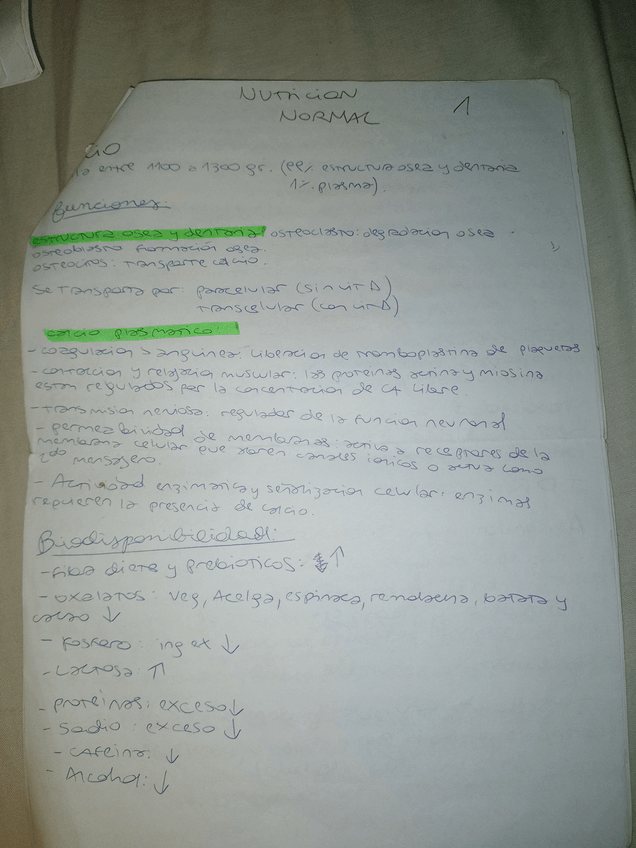 NUTRICION
NORMAL
1
IO
la entre 1100 a 1300 gr. (99% estructura osea y dentaria
1% plasma).
funciones:
estructura osea y dentaria osteoclasto: degradacion osea
osteoblasto formación osea.
osteocitos: transporte calcio.
se transporta por: paracelular (sin vit D)
transcelular (con vit D)
calcio plasmatico:
- coagulacion sanguinea: liberacion de tromboplastina de plaquetas
- contraccion y relajacion muscular: las proteinas actina y miosina
estan regulados por la concentracion de CA libre.
- transmision nerviosa: regulador de la funcion neuronal
- permeabilidad de membranas: activa a receptores de la
membrana celular que abren canales ionicos o actua como
2do mensajero.
- Actividad enzimatica y señalizacion celular: enzimas
requieren la presencia de calcio.
Biodisponibilidad:
- fibra diete y prebioticos: ↑
- oxalatos: veg, Acelga, espinaca, remolacha, batata y
cacao ↓
- fosforo: ing ex ↓
- Lactosa: ↑
- proteinas: exceso ↓
- sodio: exceso ↓
- cafeina: ↓
- Alcohol: ↓